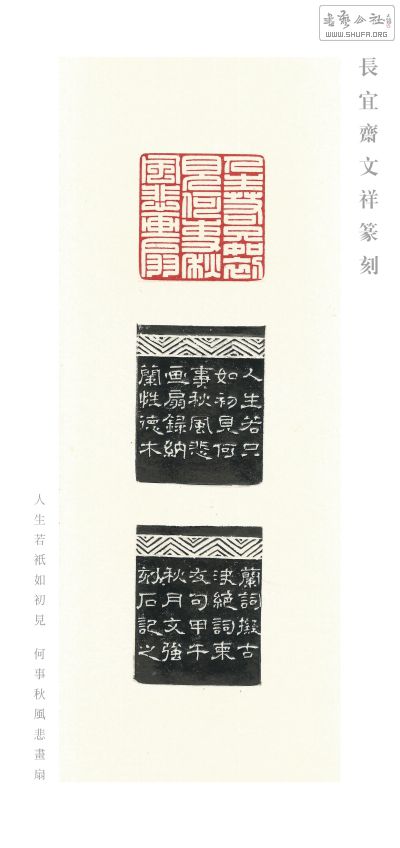 書藝公社
WWW.SHUFA.ORG
長宜齋文祥篆刻
人生若只如初
見何事秋
風悲画扇
人生若只
如初見何
事秋風悲
画扇錄納
蘭性德木
蘭詞擬古
決絕詞柬
友句甲午
秋月文強
刻石記之
人生若衹如初見 何事秋風悲畫扇